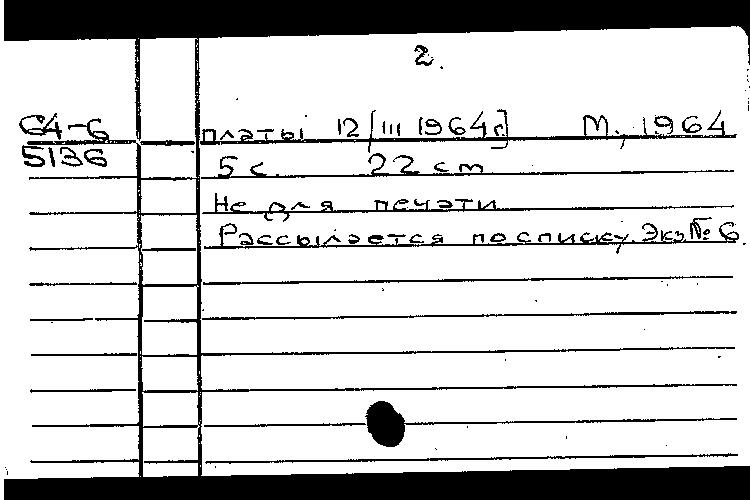 2.
64-6
5136
платы 12/III 1964г] М., 1964
5 с. 22 cm
Не для печати
Рассылается по списку. Экз № 6.